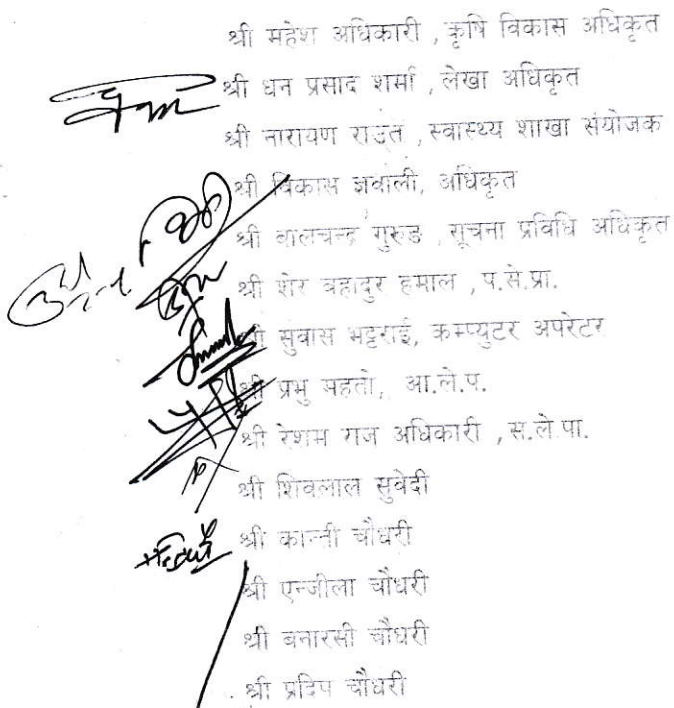 श्री महेश अधिकारी , कृषि विकास अधिकृत
श्री धन प्रसाद शर्मा , लेखा अधिकृत
श्री नारायण राउत , स्वास्थ्य शाखा संयोजक
श्री विकास ज्ञवाली, अधिकृत
श्री बालचन्द्र गुरुङ , सूचना प्रविधि अधिकृत
श्री शेर बहादुर हमाल , प.से.प्रा.
श्री सुवास भट्टराई, कम्प्युटर अपरेटर
श्री प्रभु महतो, आ.ले.प.
श्री रेशम राज अधिकारी , स.ले.पा.
श्री शिवलाल सुवेदी
श्री कान्ती चौधरी
श्री एन्जीला चौधरी
श्री बनारसी चौधरी
श्री प्रदिप चौधरी